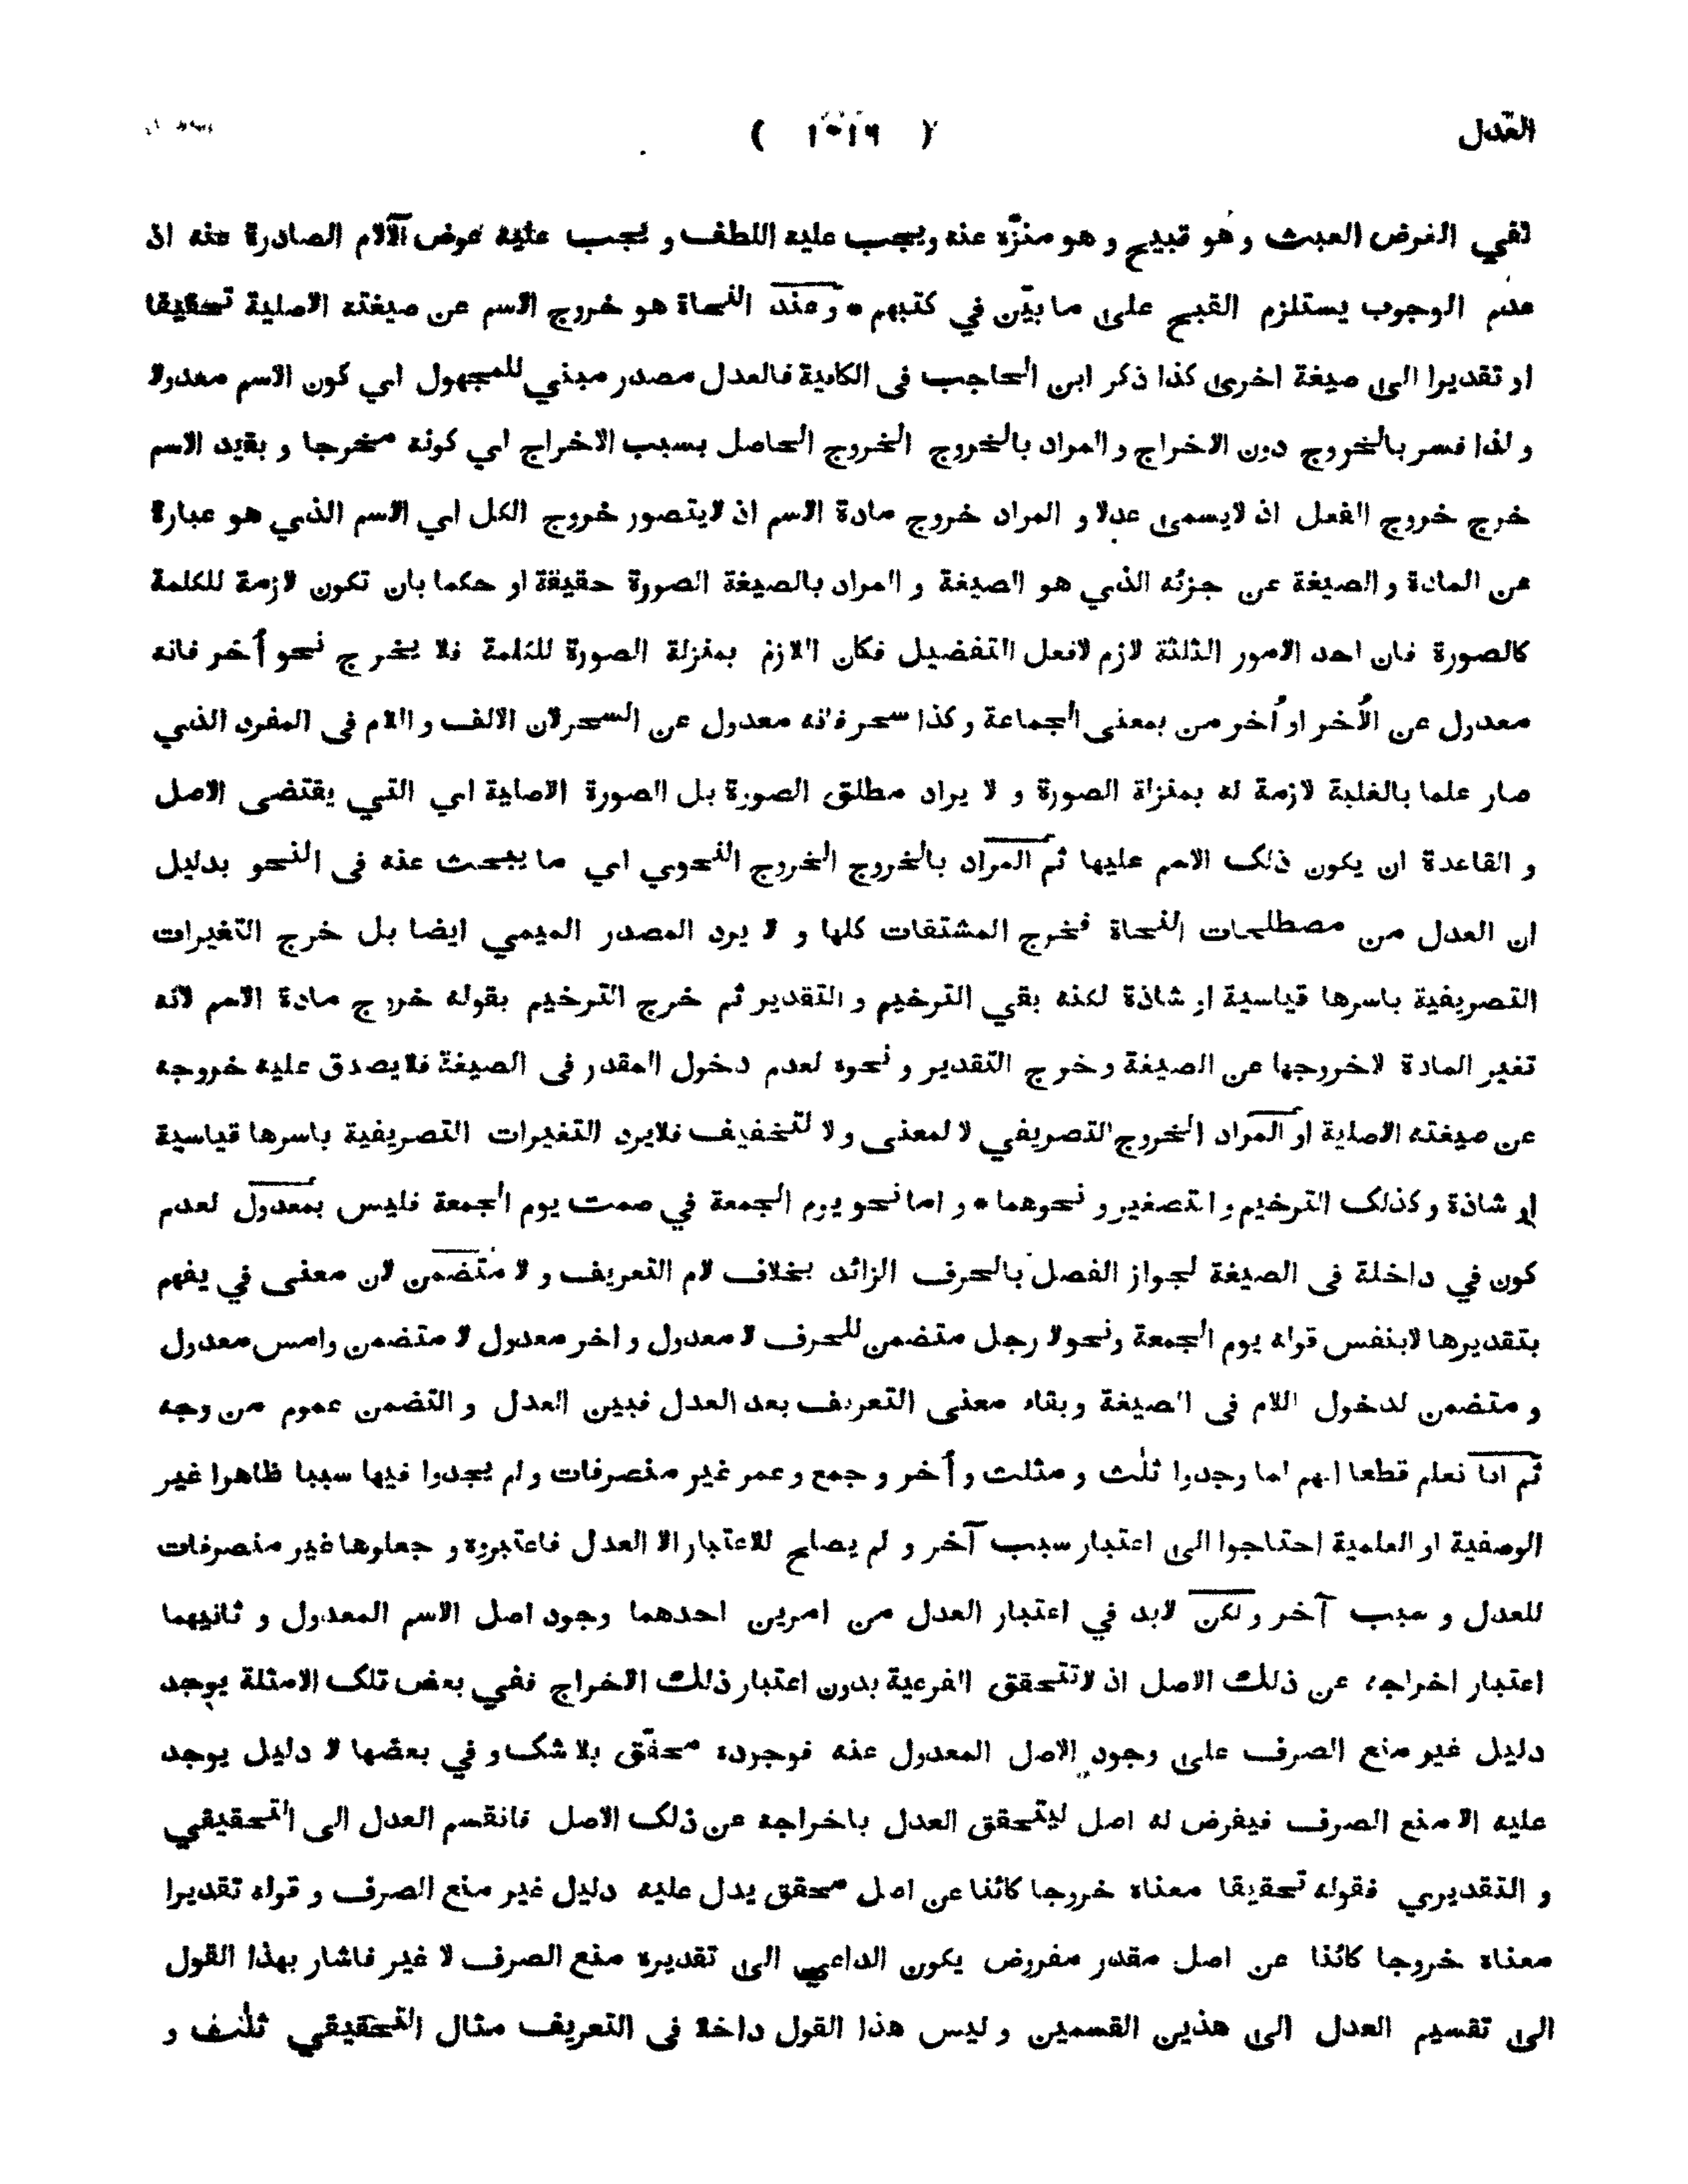 العدل
( ١٠١٦ )
نفي الغرض العبث و هو قبيح و هو منزّه عنه ويجب عليه اللطف و يجب عليه عوض الآلام الصادرة عنه اذ
عدم الوجوب يستلزم القبح على ما بيّن في كتبهم * و عند النحاة هو خروج الاسم عن صيغته الاصلية تحقيقا
او تقديرا الى صيغة اخرى كذا ذكر ابن الحاجب فى الكافية فالعدل مصدر مبني للمجهول اي كون الاسم معدولا
و لذا فسر بالخروج دون الاخراج و المراد بالخروج الخروج الحاصل بسبب الاخراج اي كونه مخرجا و بقيد الاسم
خرج خروج الفعل اذ لايسمى عدلا و المراد خروج مادة الاسم اذ لايتصور خروج الكل اي الاسم الذي هو عبارة
عن المادة و الصيغة عن جزئه الذي هو الصيغة و المراد بالصيغة الصورة حقيقة او حكما بان تكون لازمة للكلمة
كالصورة فان احد الامور الثلثة لازم لافعل التفضيل فكان اللازم بمنزلة الصورة للكلمة فلا يخرج نحو أخر فانه
معدول عن الأخر او أخر من بمعنى الجماعة و كذا سحر فانه معدول عن السحر لان الالف و اللام فى المفرد الذي
صار علما بالغلبة لازمة له بمنزلة الصورة و لا يراد مطلق الصورة بل الصورة الاصلية اي التي يقتضى الاصل
و القاعدة ان يكون ذلك الاسم عليها ثم المراد بالخروج الخروج النحوي اي ما يبحث عنه فى النحو بدليل
ان العدل من مصطلحات النحاة فخرج المشتقات كلها و لا يرد المصدر الميمي ايضا بل خرج التغيرات
التصريفية باسرها قياسية او شاذة لكنه بقي الترخيم و التقدير ثم خرج الترخيم بقوله خروج مادة الاسم لانه
تغير المادة لاخروجها عن الصيغة و خرج التقدير و نحوه لعدم دخول المقدر فى الصيغة فلايصدق عليه خروجه
عن صيغته الاصلية او المراد الخروج التصريفي لا لمعنى و لا لتخفيف فلايرد التغيرات التصريفية باسرها قياسية
او شاذة و كذلك الترخيم و التصغير و نحوهما * و اما نحو يوم الجمعة في صمت يوم الجمعة فليس بمعدول لعدم
كون في داخلة فى الصيغة لجواز الفصل بالحرف الزائد بخلاف لام التعريف و لا متضمن لان معنى في يفهم
بتقديرها لابنفس قوله يوم الجمعة و نحو لا رجل متضمن للحرف لا معدول و اخر معدول لا متضمن و امس معدول
و متضمن لدخول اللام فى الصيغة و بقاء معنى التعريف بعد العدل فبين العدل و التضمن عموم من وجه
ثم انا نعلم قطعا انهم لما وجدوا ثلث و مثلث و أخر و جمع و عمر غير منصرفات و لم يجدوا فيها سببا ظاهرا غير
الوصفية او العلمية احتاجوا الى اعتبار سبب آخر و لم يصلح للاعتبار الا العدل فاعتبروه و جعلوها غير منصرفات
للعدل و سبب آخر و لكن لابد في اعتبار العدل من امرين احدهما وجود اصل الاسم المعدول و ثانيهما
اعتبار اخراجه عن ذلك الاصل اذ لاتتحقق الفرعية بدون اعتبار ذلك الاخراج ففي بعض تلك الامثلة يوجد
دليل غير منع الصرف على وجود الاصل المعدول عنه فوجوده محقّق بلا شك و في بعضها لا دليل يوجد
عليه الا منع الصرف فيفرض له اصل ليتحقق العدل باخراجه عن ذلك الاصل فانقسم العدل الى التحقيقي
و التقديري فقوله تحقيقا معناه خروجا كائنا عن اصل محقق يدل عليه دليل غير منع الصرف و قوله تقديرا
معناه خروجا كائنا عن اصل مقدر مفروض يكون الداعي الى تقديره منع الصرف لا غير فاشار بهذا القول
الى تقسيم العدل الى هذين القسمين و ليس هذا القول داخلا فى التعريف مثال التحقيقي ثلث و